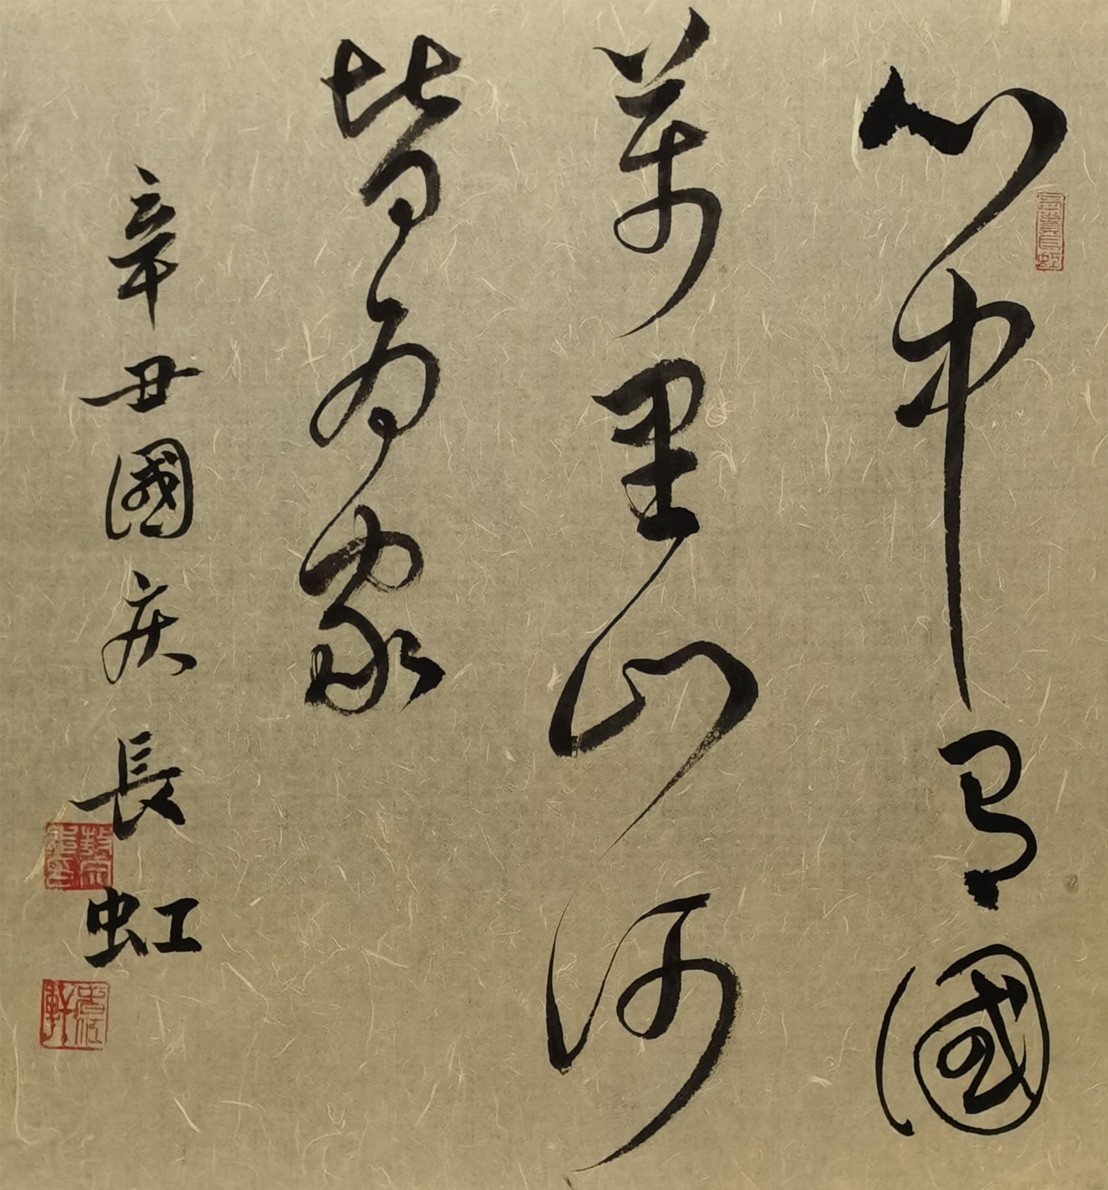 心中有國
萬里山河
皆為家
辛丑國庆長虹